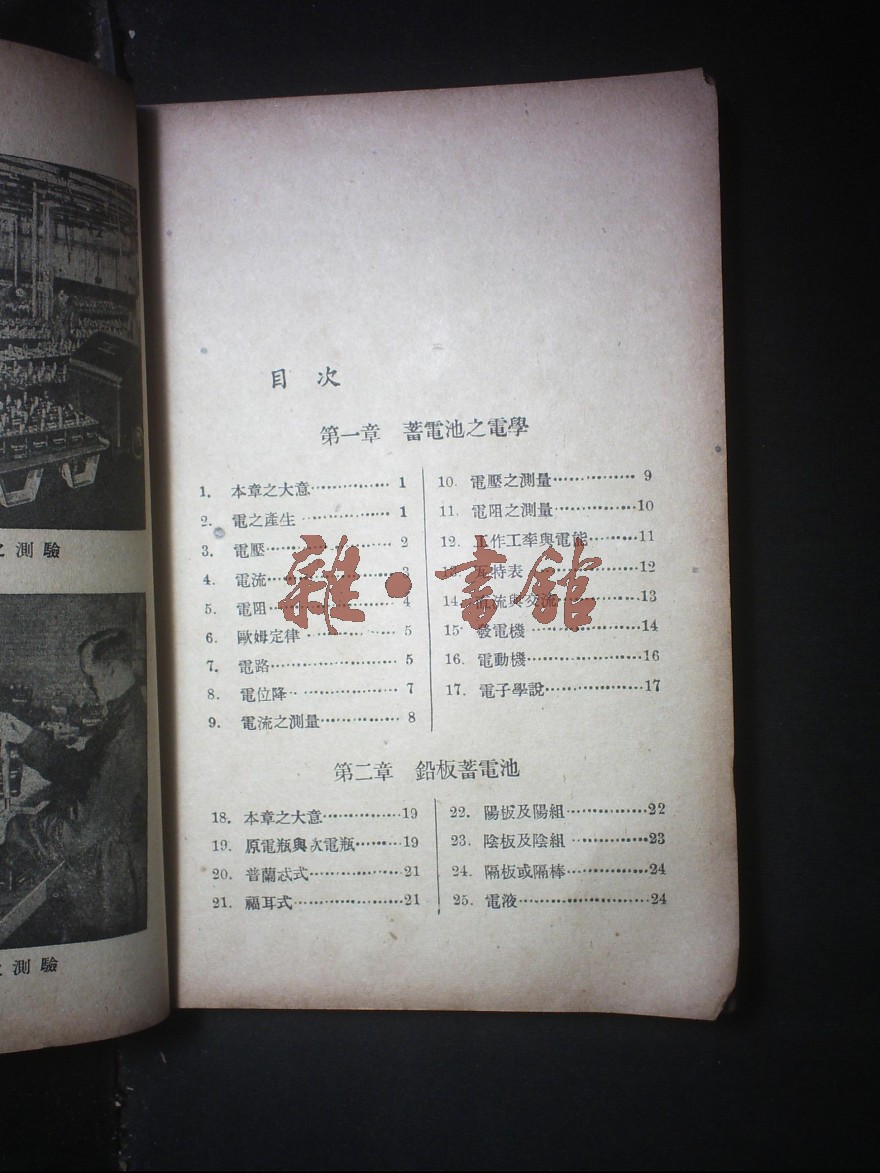 之測驗
之測驗
目次
第一章 蓄電池之電學
1. 本章之大意 1
2. 電之產生 1
3. 電壓 2
4. 電流 3
5. 電阻 4
6. 歐姆定律 5
7. 電路 5
8. 電位降 7
9. 電流之測量 8
10. 電壓之測量 9
11. 電阻之測量 10
12. 工作工率與電能 11
13. 瓦特表 12
14. 直流與交流 13
15. 發電機 14
16. 電動機 16
17. 電子學說 17
第二章 鉛板蓄電池
18. 本章之大意 19
19. 原電瓶與次電瓶 19
20. 普蘭忒式 21
21. 福耳式 21
22. 陽板及陽組 22
23. 陰板及陰組 23
24. 隔板或隔棒 24
25. 電液 24
雜·書館